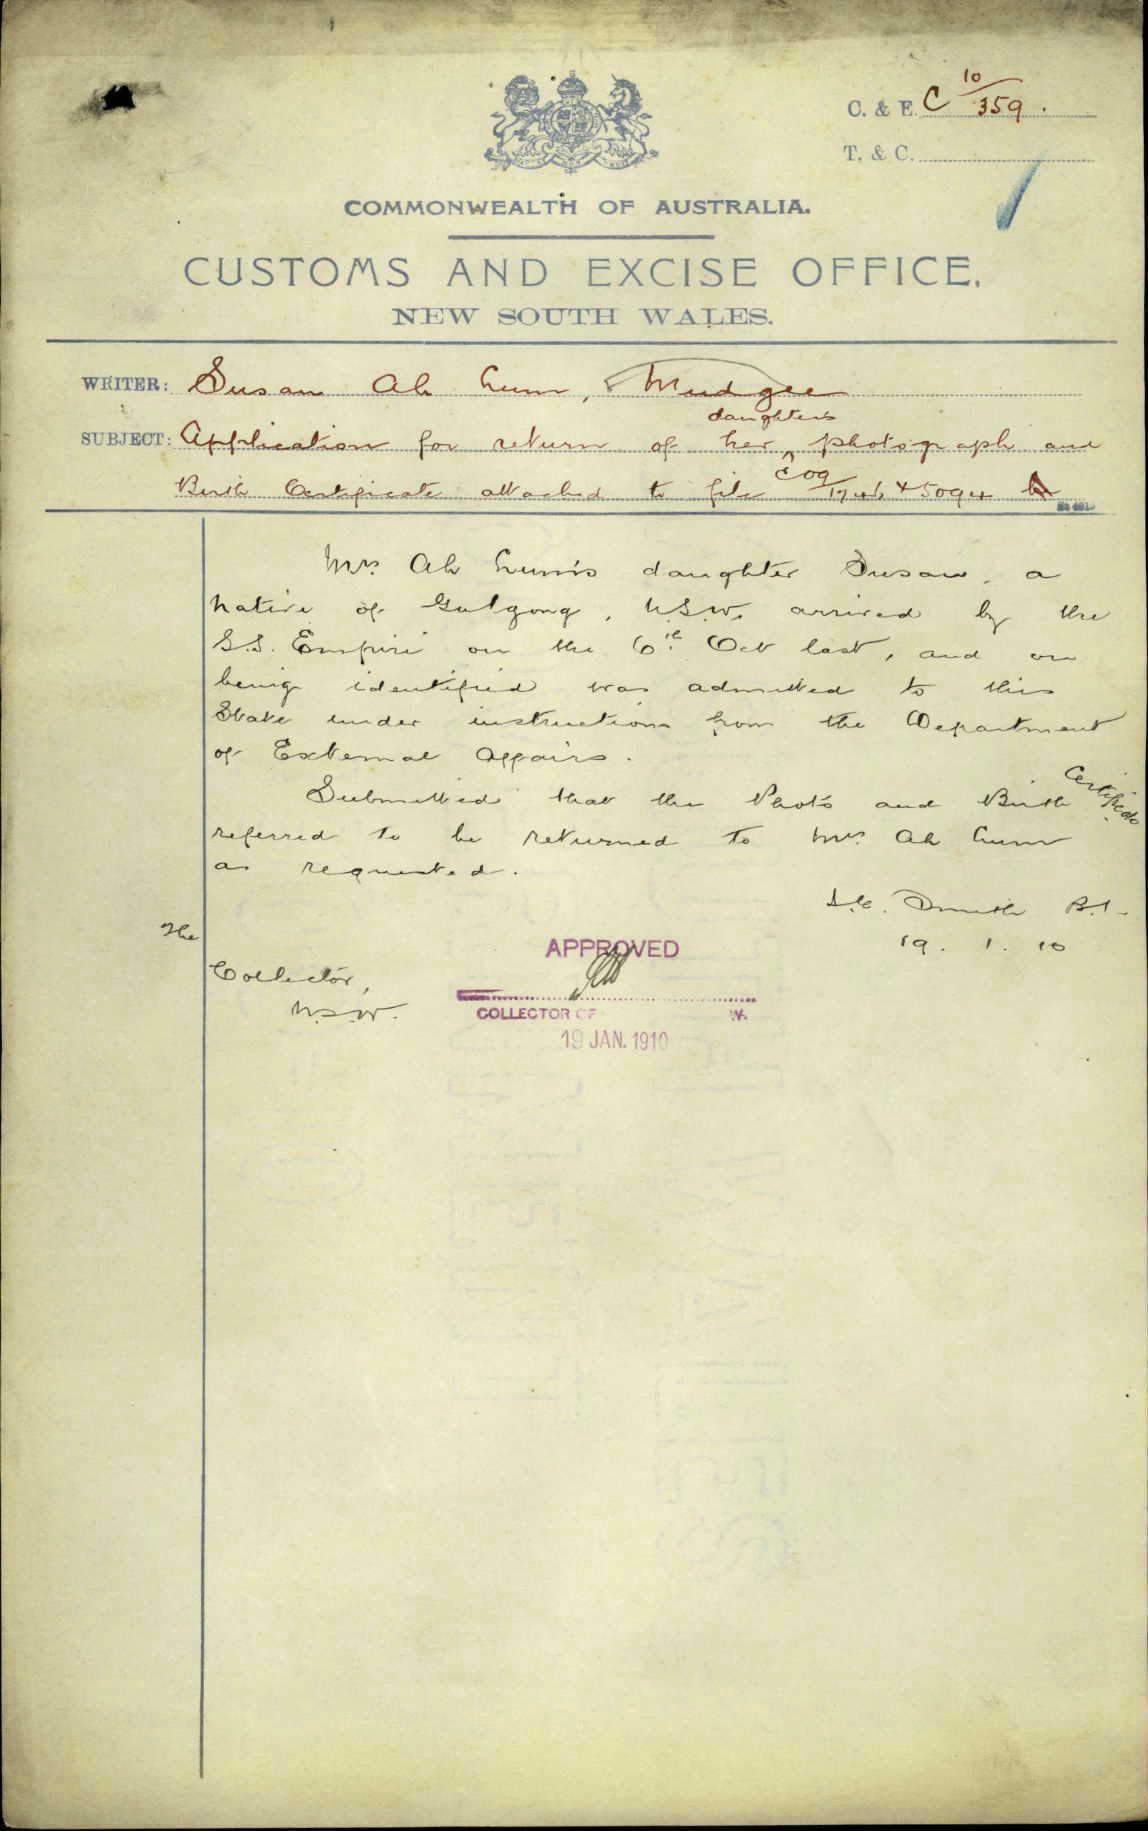 C. & E. C 10/359.
T. & C.
COMMONWEALTH OF AUSTRALIA.
CUSTOMS AND EXCISE OFFICE,
NEW SOUTH WALES.
WRITER: Susan Ah Lum, Mudgee
daughter's
SUBJECT: Application for return of her ^ photograph and
Birth Certificate attached to file C09/1746 & 5094
Mrs Ah Lum's daughter Susan, a
native of Gulgong, N.S.W. arrived by the
S.S. Empire on the 6th Oct last, and on
being identified was admitted to this
State under instructions from the Department
of External Affairs.
Submitted that the Photo and Birth Certificate
referred to be returned to Mrs Ah Lum
as requested.
Smith B.I.
19.1.10
The
Collector,
N.S.W.
APPROVED
COLLECTOR OF W.
19 JAN. 1910